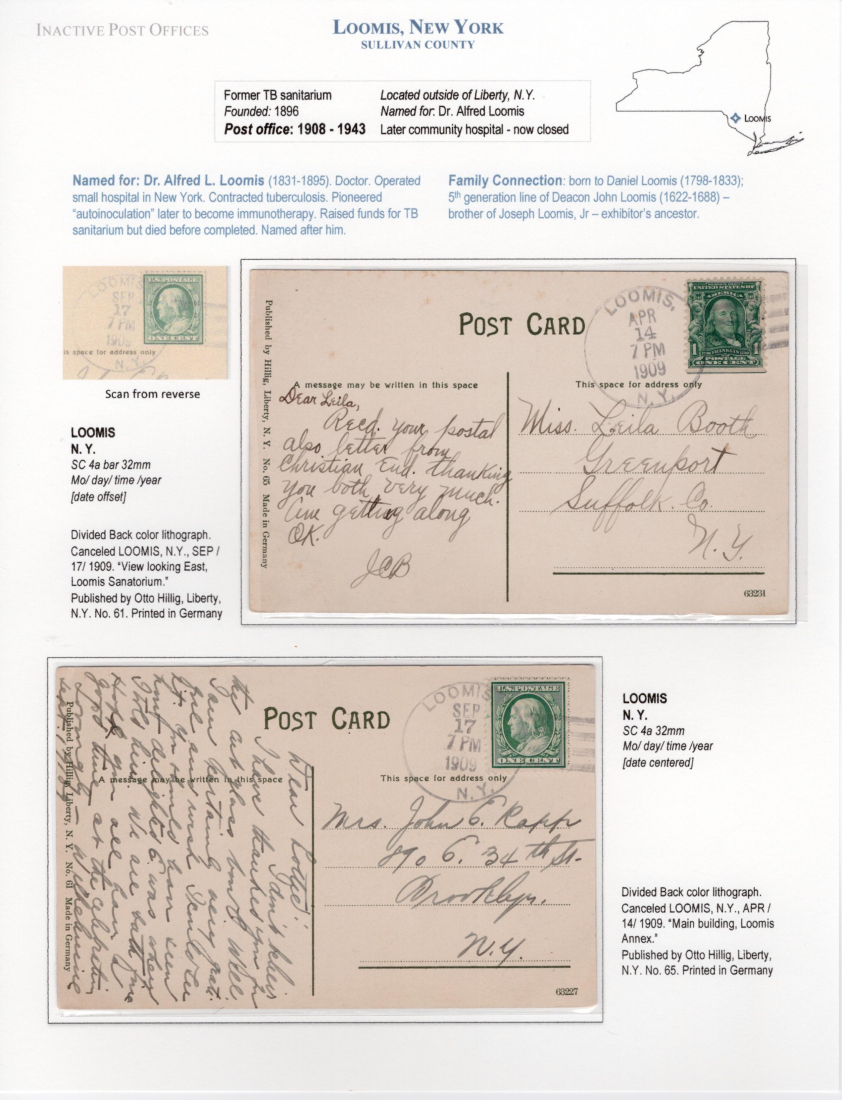 INACTIVE POST OFFICES
LOOMIS, NEW YORK
SULLIVAN COUNTY
LOOMIS
Former TB sanitarium
Founded: 1896
Post office: 1908 - 1943
Located outside of Liberty, N.Y.
Named for: Dr. Alfred Loomis
Later community hospital - now closed
Named for: Dr. Alfred L. Loomis (1831-1895). Doctor. Operated
small hospital in New York. Contracted tuberculosis. Pioneered
"autoinoculation" later to become immunotherapy. Raised funds for TB
sanitarium but died before completed. Named after him.
Family Connection: born to Daniel Loomis (1798-1833);
5th generation line of Deacon John Loomis (1622-1688) –
brother of Joseph Loomis, Jr – exhibitor's ancestor.
LOOMIS
SEP
17
7 PM
1909
N.Y.
U.S. POSTAGE
ONE CENT
is space for address only
Scan from reverse
LOOMIS
N. Y.
SC 4a bar 32mm
Mo/ day/ time /year
[date offset]
Divided Back color lithograph.
Canceled LOOMIS, N.Y., SEP /
17/ 1909. "View looking East,
Loomis Sanatorium."
Published by Otto Hillig, Liberty,
N.Y. No. 61. Printed in Germany
Published by Hillig, Liberty, N. Y. No. 65 Made in Germany
POST CARD
LOOMIS,
APR
14
7 PM
1909
N.Y.
UNITED STATES OF
AMERICA
FRANKLIN
POSTAGE
ONE CENT
A message may be written in this space
This space for address only
Dear Leila,
Recd. your postal
also letter from
Christian End. thanking
you both very much.
Am getting along
OK.
JCB
Miss. Leila Booth
Greenport
Suffolk. Co.
N.Y.
63231
Published by Hillig, Liberty, N. Y. No. 61 Made in Germany
POST CARD
LOOMIS
SEP
17
7 PM
1909
N.Y.
U.S. POSTAGE
ONE CENT
A message may be written in this space
This space for address only
Dear
I don't
I have thanked you for
the cut glass bowl
I am certainly very
and wish
you
I told him. We are both
Hope you all had a
good time at the celebration
Mrs. John E. Rapp
890 E. 34th St.
Brooklyn.
N.Y.
63227
LOOMIS
N. Y.
SC 4a 32mm
Mo/ day/ time /year
[date centered]
Divided Back color lithograph.
Canceled LOOMIS, N.Y., APR /
14/ 1909. "Main building, Loomis
Annex."
Published by Otto Hillig, Liberty,
N.Y. No. 65. Printed in Germany